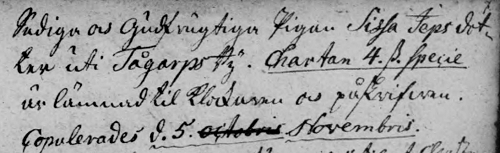 Sediga oc Gudfrugtiga Pigan Sissa Jeps dot-
ter uti Tågarps by. Chartan 4. s. specie
är lämnad til Klockaren oc påskrifven.
Copulerades d. 5. octobris Novembris.